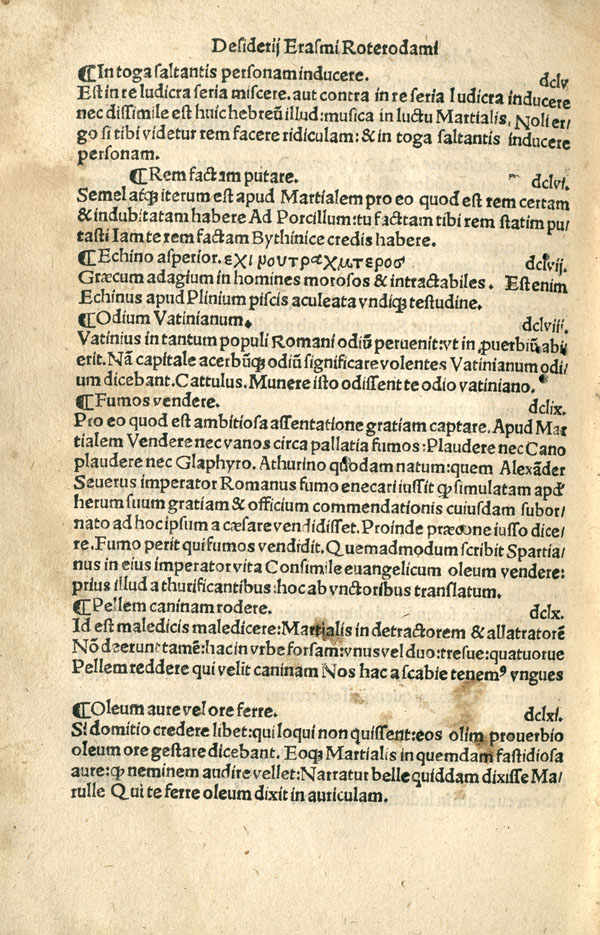 Desiderij Erasmi Roterodami
¶In toga saltantis personam inducere. dclv
Est in re ludicra seria miscere. aut contra in re seria ludicra inducere
nec dissimile est huic hebreũ illud: musica in luctu Martialis. Noli er/
go si tibi videtur rem facere ridiculam: & in toga saltantis inducere
personam.
¶Rem factam putare. dclvi.
Semel atqꝫ iterum est apud Martialem pro eo quod est rem certam
& indubitatam habere Ad Porcillum: tu factam tibi rem statim pu/
tasti Iam te rem factam Bythinice credis habere.
¶Echino asperior. εχι μουτραχμτεροσ dclvij.
Græcum adagium in homines morosos & intractabiles. Est enim
Echinus apud Plinium piscis aculeata vndiqꝫ testudine.
¶Odium Vatinianum. dclviii.
Vatinius in tantum populi Romani odiũ peruenit: vt in ꝓuerbiũ abi/
erit. Nã capitale acerbũqꝫ odiũ significare volentes Vatinianum odi/
um dicebant. Cattulus. Munere isto odissent te odio vatiniano.
¶Fumos vendere. dclix.
Pro eo quod est ambitiosa assentatione gratiam captare. Apud Mar
tialem Vendere nec vanos circa pallatia fumos: Plaudere nec Cano
plaudere nec Glaphyro. Athurino quodam natum: quem Alexãder
Seuerus imperator Romanus fumo enecari iussit ꝙ simulatam apd'
herum suum gratiam & officium commendationis cuiusdam subor/
nato ad hoc ipsum a cæsare vendidisset. Proinde præcone iusso dice/
re. Fumo perit qui fumos vendidit. Quemadmodum scribit Spartia/
nus in eius imperator vita Consimile euangelicum oleum vendere:
prius illud a thurificantibus: hoc ab vnctoribus translatum.
¶Pellem caninam rodere. dclx.
Id est maledicis maledicere: Martialis in detractorem & allatratorẽ
Nõ deerunt tamẽ: hac in vrbe forsam: vnus vel duo: tresue: quatuorue
Pellem reddere qui velit caninam Nos hac a scabie tenemꝰ vngues
¶Oleum aure vel ore ferre. dclxi.
Si domitio credere libet: qui loqui non quissent: eos olim prouerbio
oleum ore gestare dicebant. Eoqꝫ Martialis in quemdam fastidiosa
aure: ꝙ neminem audire vellet: Narratur belle quiddam dixisse Ma/
rulle Qui te ferre oleum dixit in auriculam.